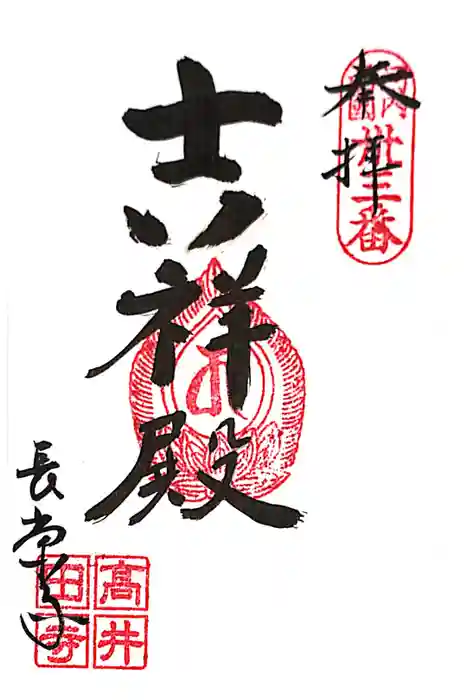 奉拝
河内
三番
吉祥殿
長栄寺
高井
田寺